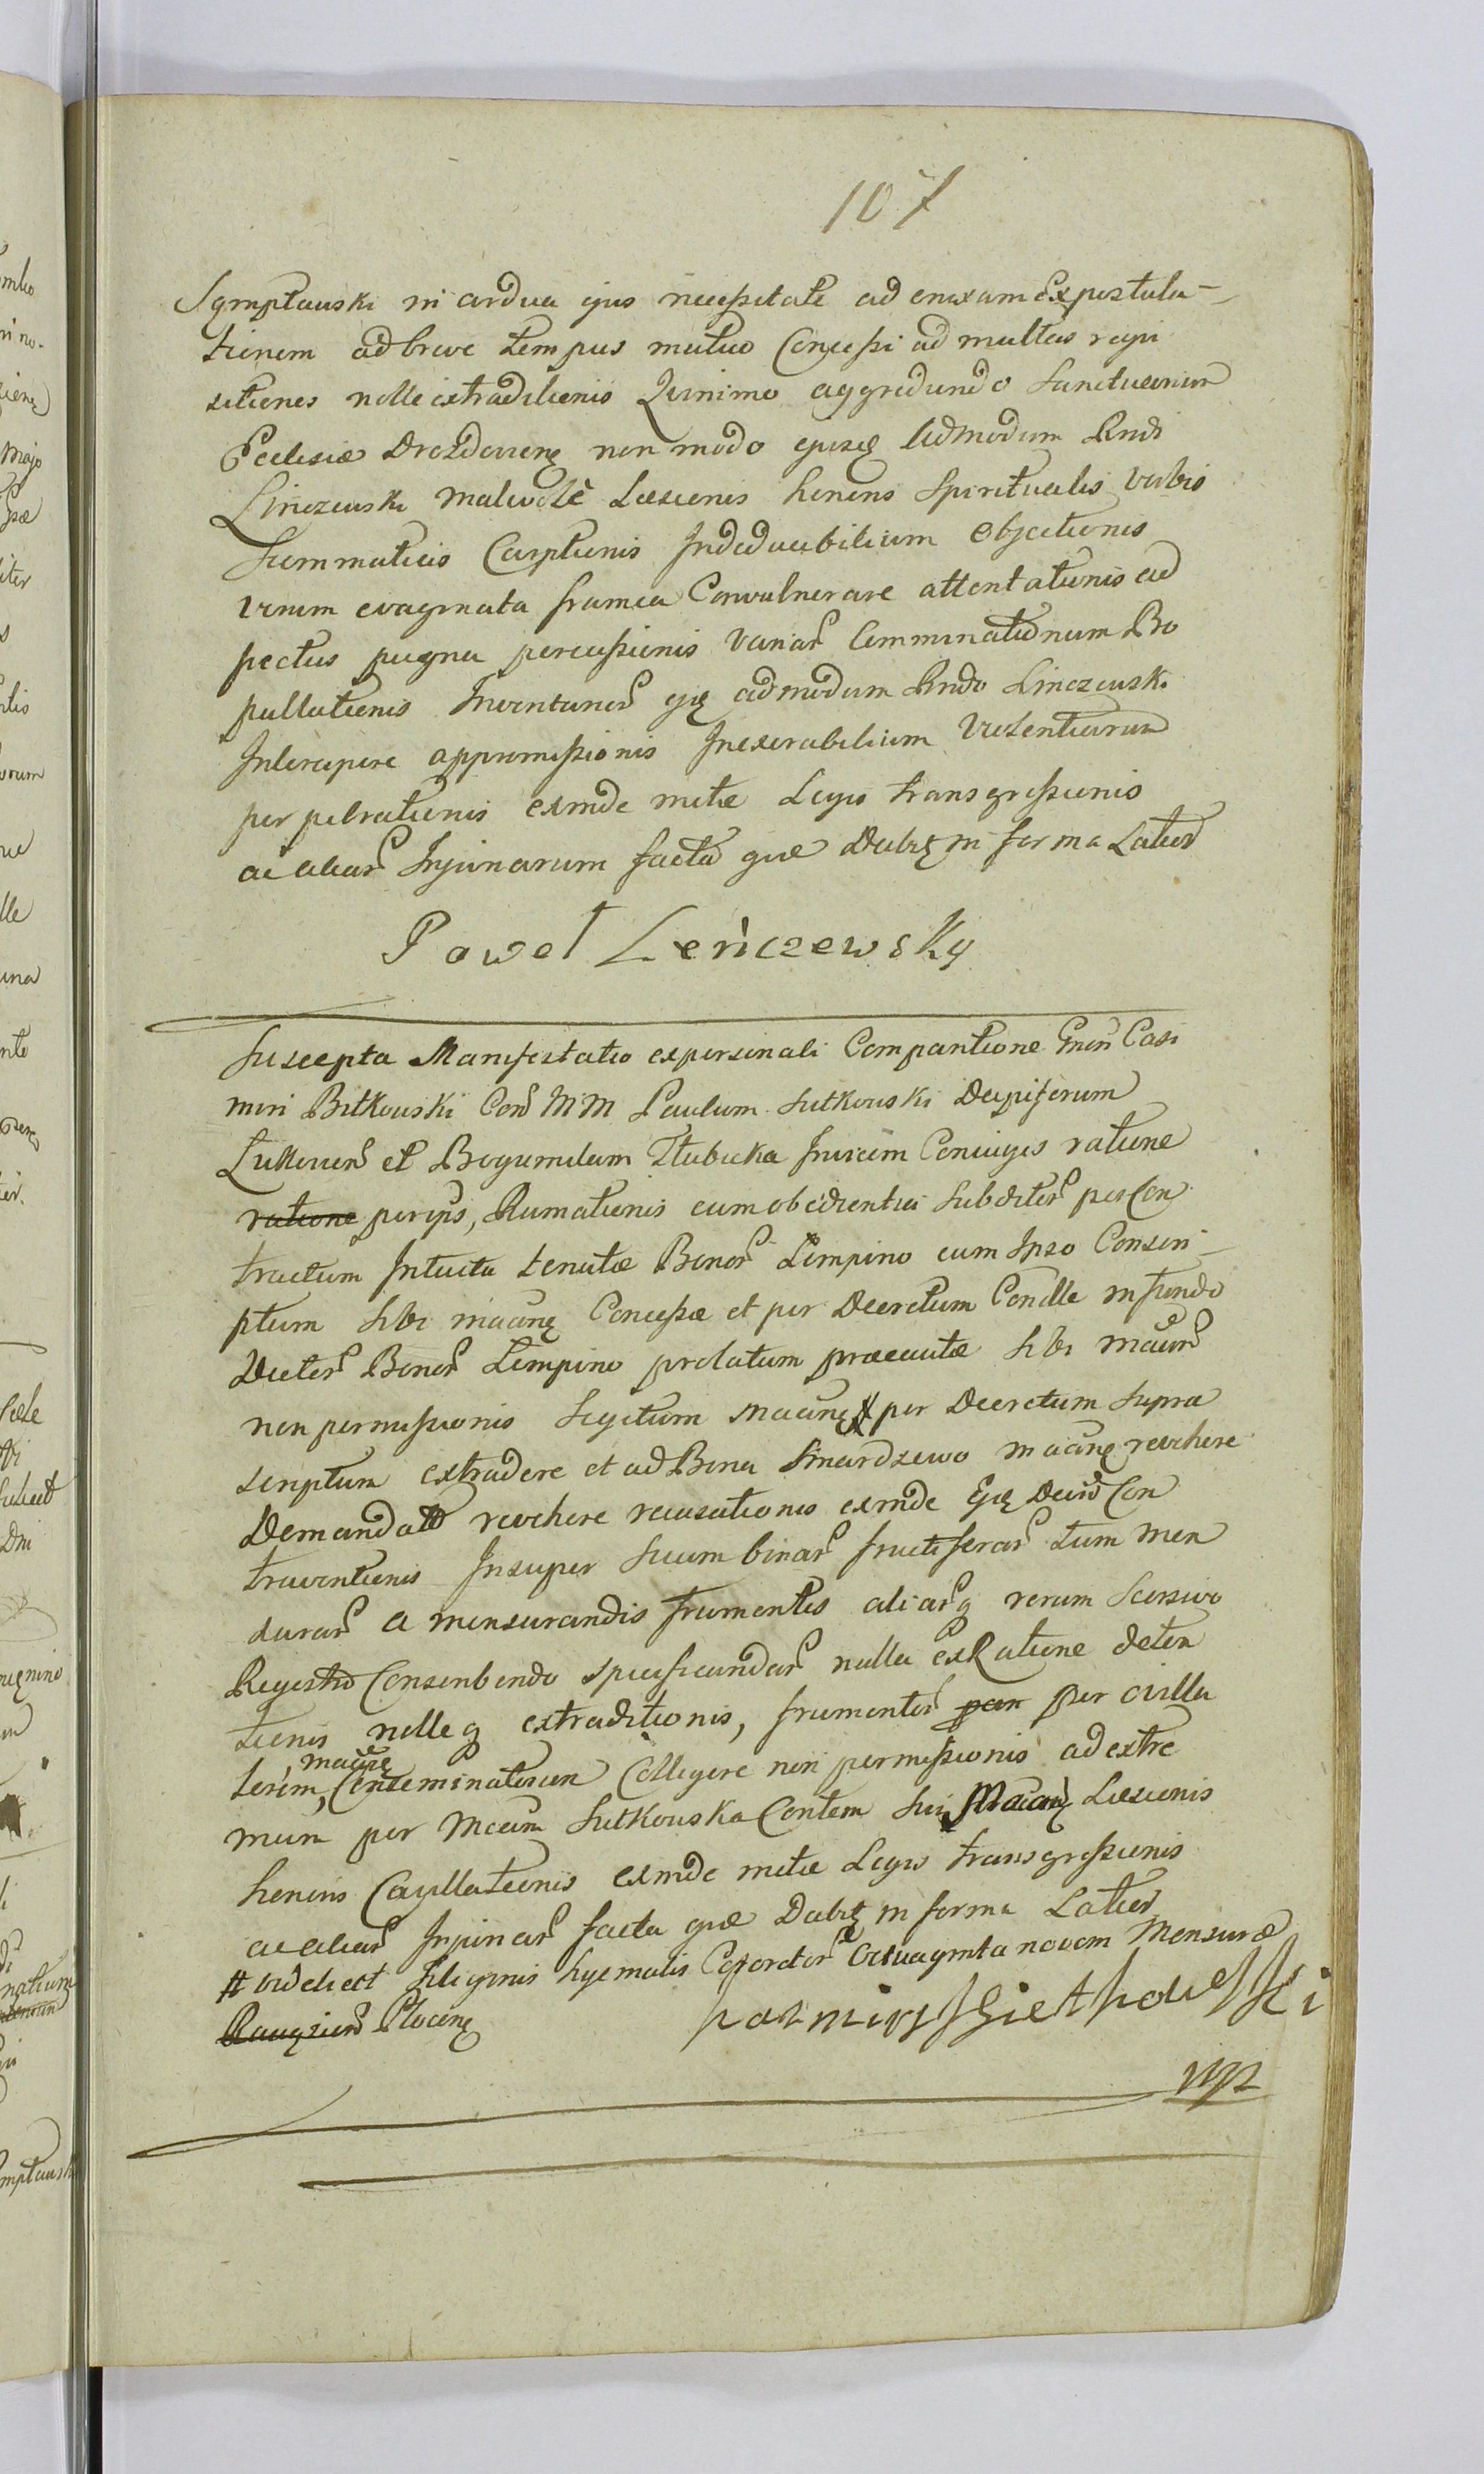 107
Sgmptauski in ardua ejus necessitate ad enixam Expostula-
tionem ad breve tempus mutuo Concessi ad multas requi
sitiones nolle extraditionis Quinimo aggrediundo Sanctuarium
Ecclesiæ Drozdoviens non modo ejusq Admodum Rndi
Linczewski malevolè Læsionis honoris Spiritualis verbis
Summaticis Carptionis Indeducibilium Objectionis
verum evaginata framea Convulnerare attentationis ad
pectus pugna percussionis variar Comminationum Bo
pullationis Inventuror ejq admodum Rndo Linczewski
Intercipere appromissionis Inexorabilium Violentiarum
perpetrationis exinde metæ Legis transgressionis
ac aliar Injuriarum facta quæ Dabit in forma Latiori
Paweł Leńczewsky
Suscepta Manifestatio ex personali Comparitione Gnen Casi
miri Bitkowski Con MM Paulum Sutkowski Dapiferum
Lukovien et Bogumilam Tłubicka Invicem Coniuges ratione
ratione per ips, Rumationis cum obedientia Subditor per Con
tractum Intuitu tenutæ Bonor Lempino cum Ipso Conscri-
ptum sibi mãnẽ Concessæ et per Decretum Condlle in fundo
Dictor Bonor Lempino prolatum præcautæ sibi mãnri
non permissionis Segetum mãnẽ # per Decretum Supra
scriptum extradere et ad Bona Smardzewo mãnẽ revehere
Demandato revehere recusationis exinde Ejq Decreti Con
traventionis Insuper Suum binar fructiferar tum men
surar a mensurandis frumentis aliarq rerum Seorsivo
Regestro Conscribendo specificandar nulla ex Ratione deten
tionis nolleq extraditionis, frumentor par per ovilla
mãnẽ
torim, Conseminatorum Colligere non permissionis ad extre
mum per Mcam Sutkowska Contem sui Mãnẽ Læsionis
honoris Cavillationis exinde metæ Legis transgressionis
ac aliar Injuriar facta quæ Dabit in forma Latiori
# videlicet Siliginis hyemalis Coreetor Octuaginta novem Mensuræ
Raugzien Plocens
kazmirz Bietkowski
mp